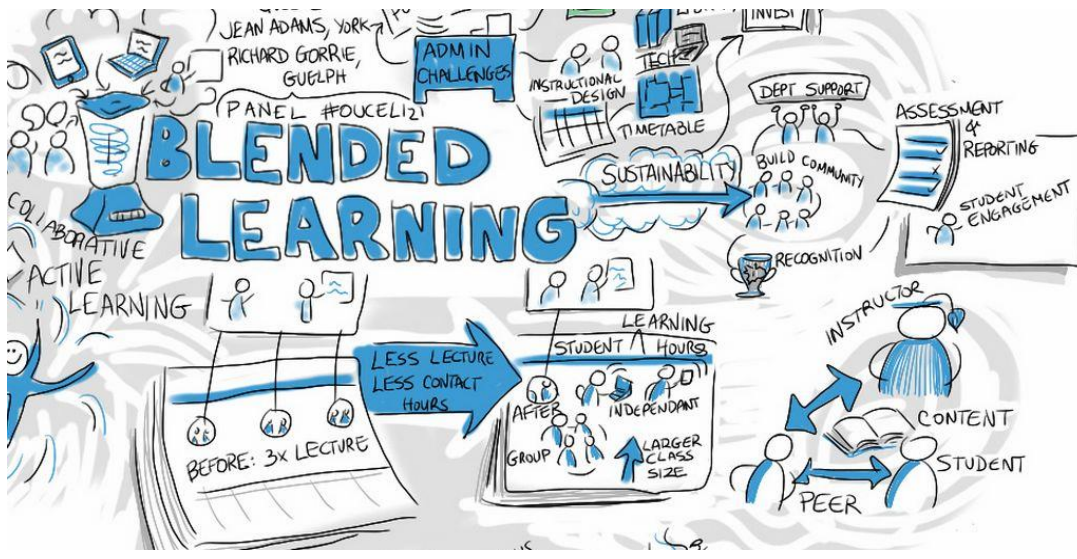 JEAN ADAMS, YORK
RICHARD GORRIE,
GUELPH
PANEL #OUCELI21
BLENDED
LEARNING
ADMIN
CHALLENGES
INSTRUCTIONAL
DESIGN
TECH
TIMETABLE
INVEST
DEPT SUPPORT
SUSTAINABILITY
BUILD COMMUNITY
RECOGNITION
ASSESSMENT
&
REPORTING
STUDENT
ENGAGEMENT
COLLABORATIVE
ACTIVE
LEARNING
BEFORE: 3x LECTURE
LESS LECTURE
LESS CONTACT
HOURS
LEARNING
STUDENT HOURS
AFTER
INDEPENDANT
GROUP
LARGER
CLASS
SIZE
INSTRUCTOR
CONTENT
STUDENT
PEER